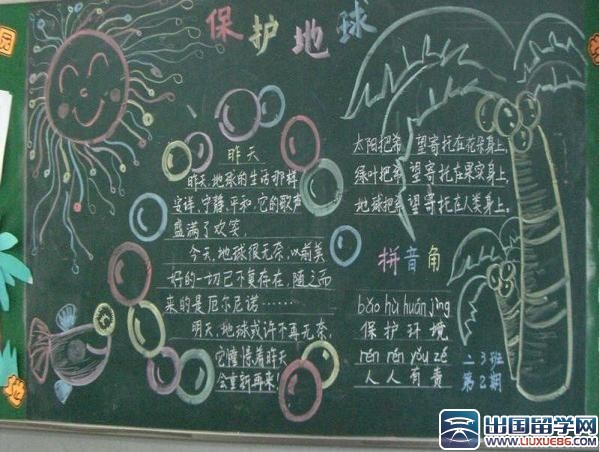 保护地球
昨天
昨天,地球的生活那样
安详,宁静,平和,它的歌声
盛满了欢笑.
今天,地球很无奈,以前美
好的一切已不复存在,随之而
来的是厄尔尼诺……
明天,地球或许不再无奈,
它憧憬着昨天
会重新再来!
太阳把希望寄托在花朵身上,
绿叶把希望寄托在果实身上,
地球把希望寄托在人类身上。
拼音角
bǎo hù huán jìng
保护环境
rén rén yǒu zé
人人有责
二3班
第2期
园
地
出国留学网
WWW.LIUXUE86.COM